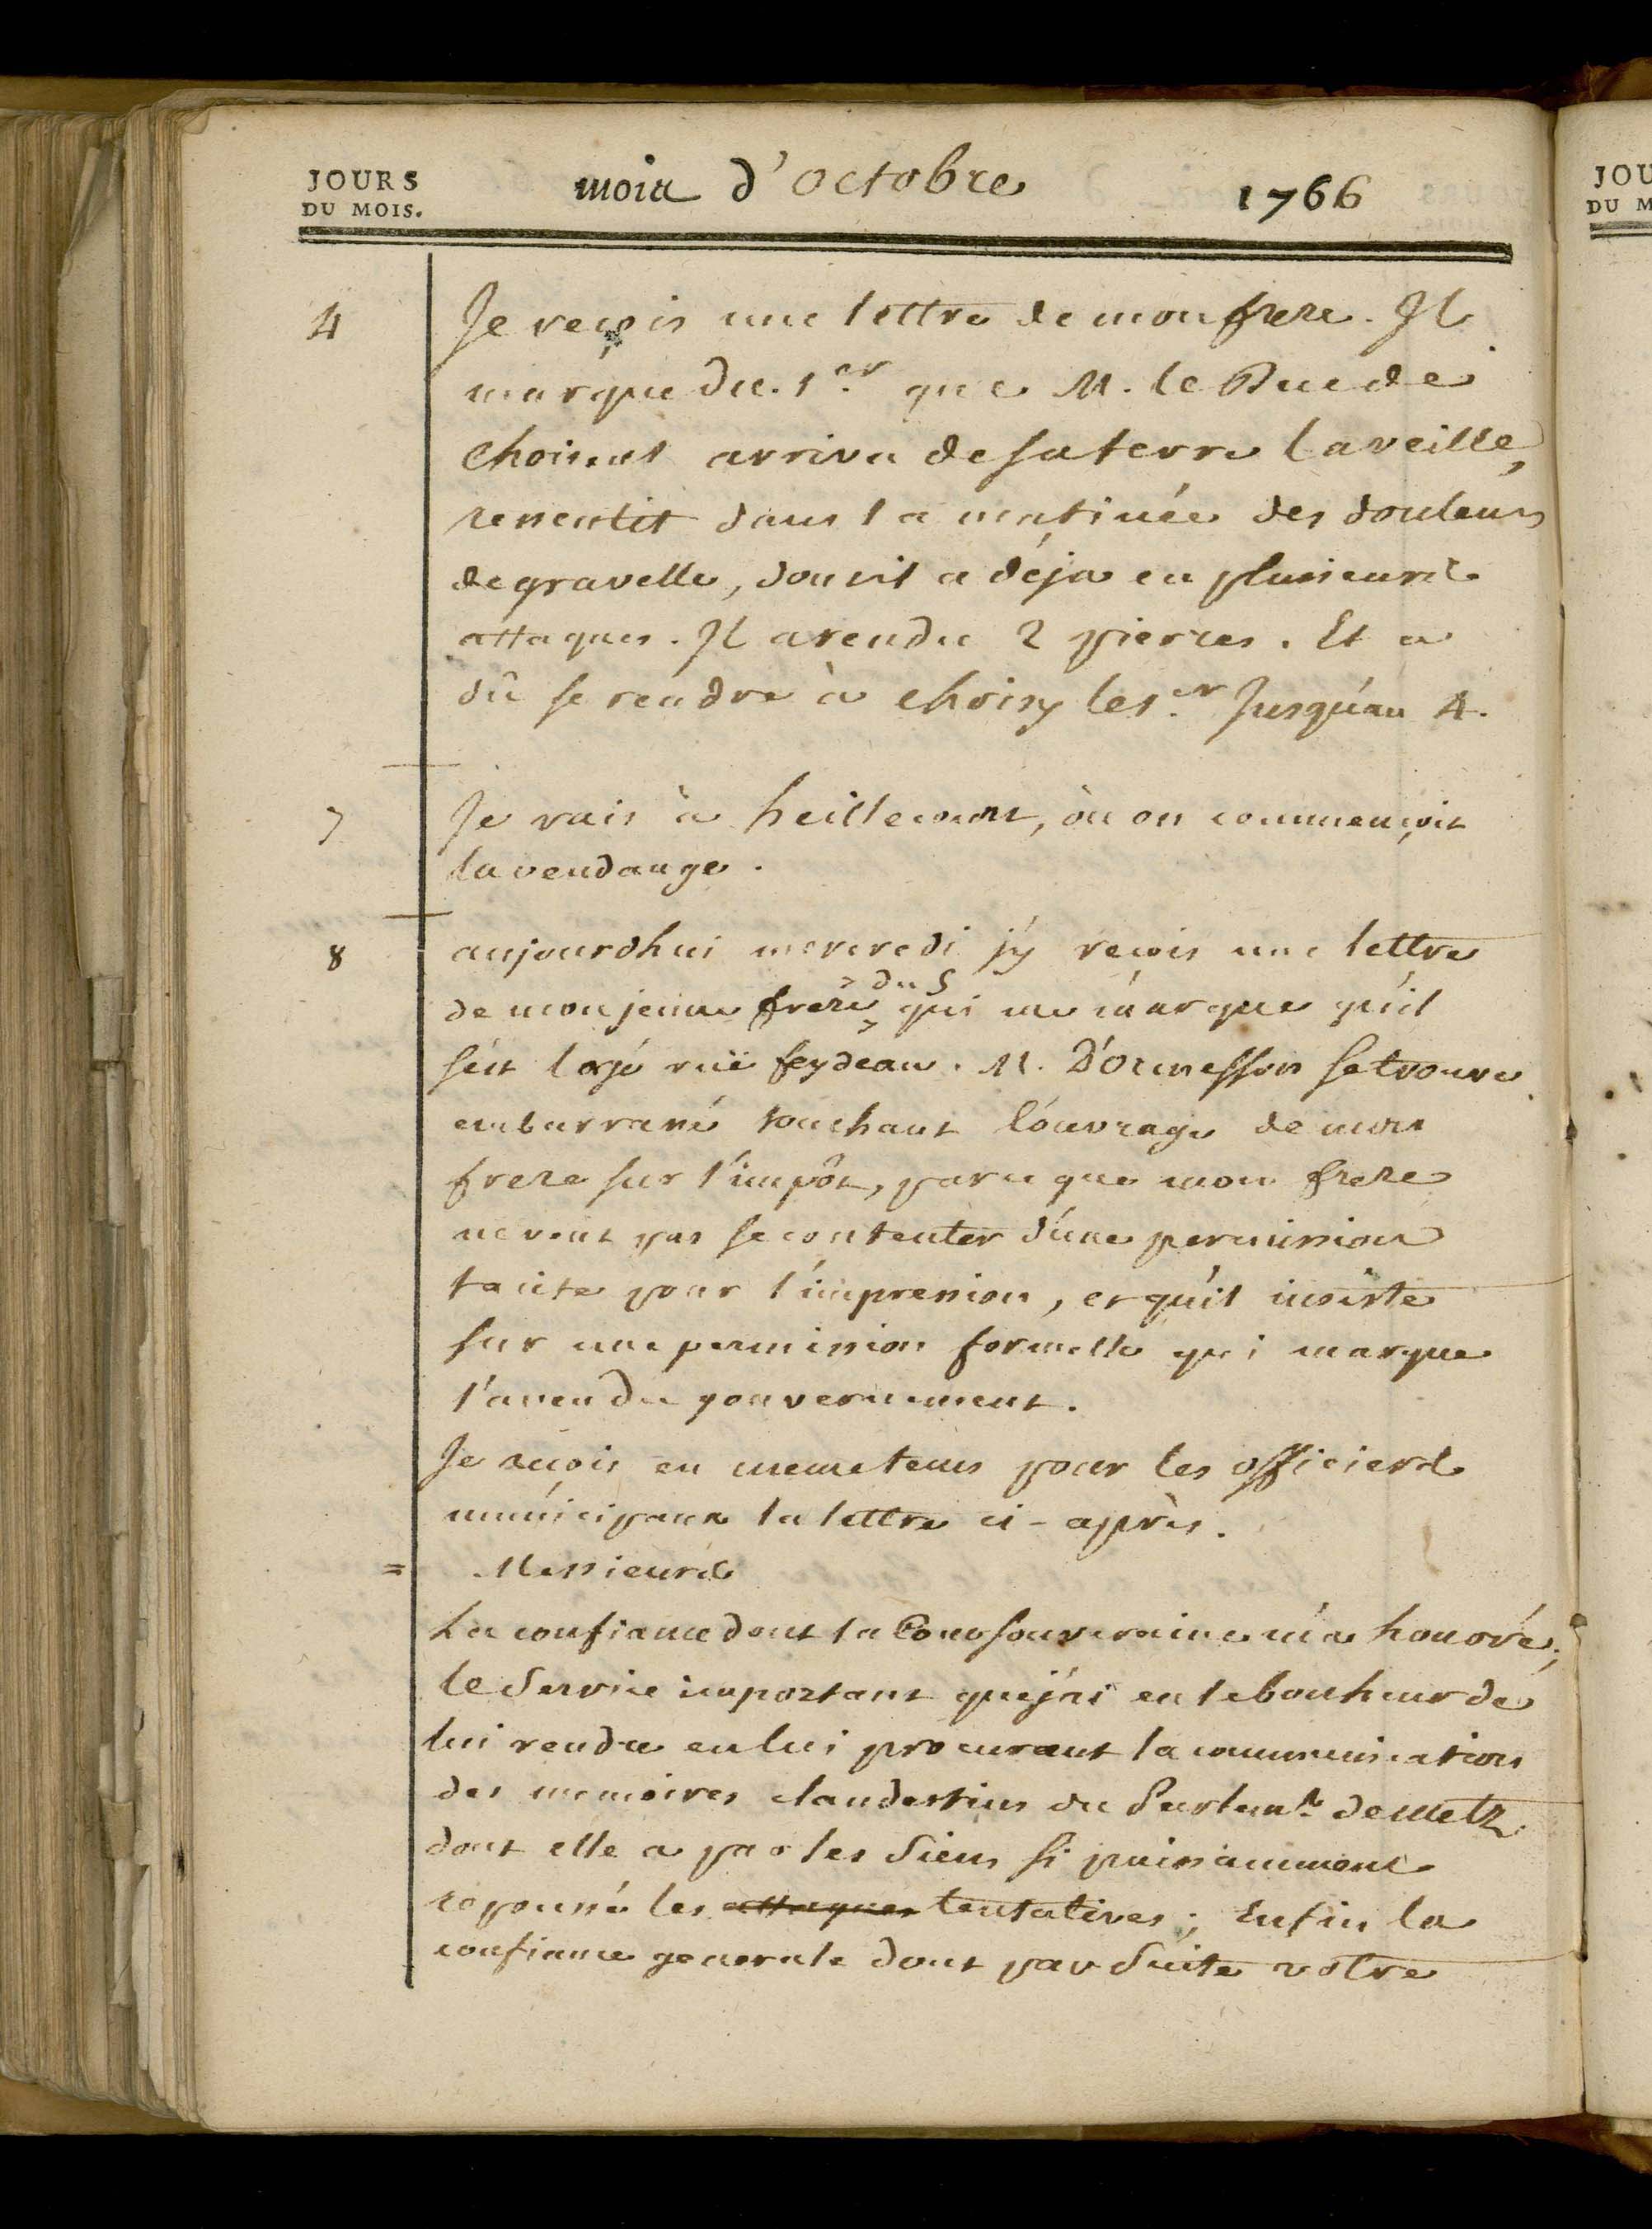 JOURS
DU MOIS.
mois d'octobre
1766
4
Je reçois une lettre de mon frere. Il
marque du 1.er que M. le Duc de
Choiseul arriva de sa terre la veille,
ressentit dans la matinée des douleurs
de gravelle, dont il a déja eu plusieurs
attaques. Il a rendu 2 pierres. Et a
dû se rendre à choisy le 1.er jusqu'au 4.
7
Je vais à heillecourt, où on commençoit
la vendange.
8
aujourdhui mercredi j'y reçois une lettre
du 5
de mon jeune frere, qui me marque qu'il
s'est logé ruë feydeau. M. D'Ormesson se trouve
embarrassé touchant l'ouvrage de mon
frere sur l'impôt, parce que mon frere
ne veut pas se contenter d'une permission
tacite pour l'impression, et qu'il insiste
sur une permission formelle qui marque
l'aveu du gouvernement.
Je reçois en meme tems pour les officiers
municipaux la lettre ci-après.
= Messieurs
La confiance dont la Cour souveraine m'a honoré;
le Service important que j'ai eu le bonheur de
lui rendre en lui procurant la communication
des memoires clandestins du Parlem.t de Metz
dont elle a par les Siens si puissamment
repoussé les attaques tentatives; Enfin la
confiance generale dont par Suite votre
JOU
DU M